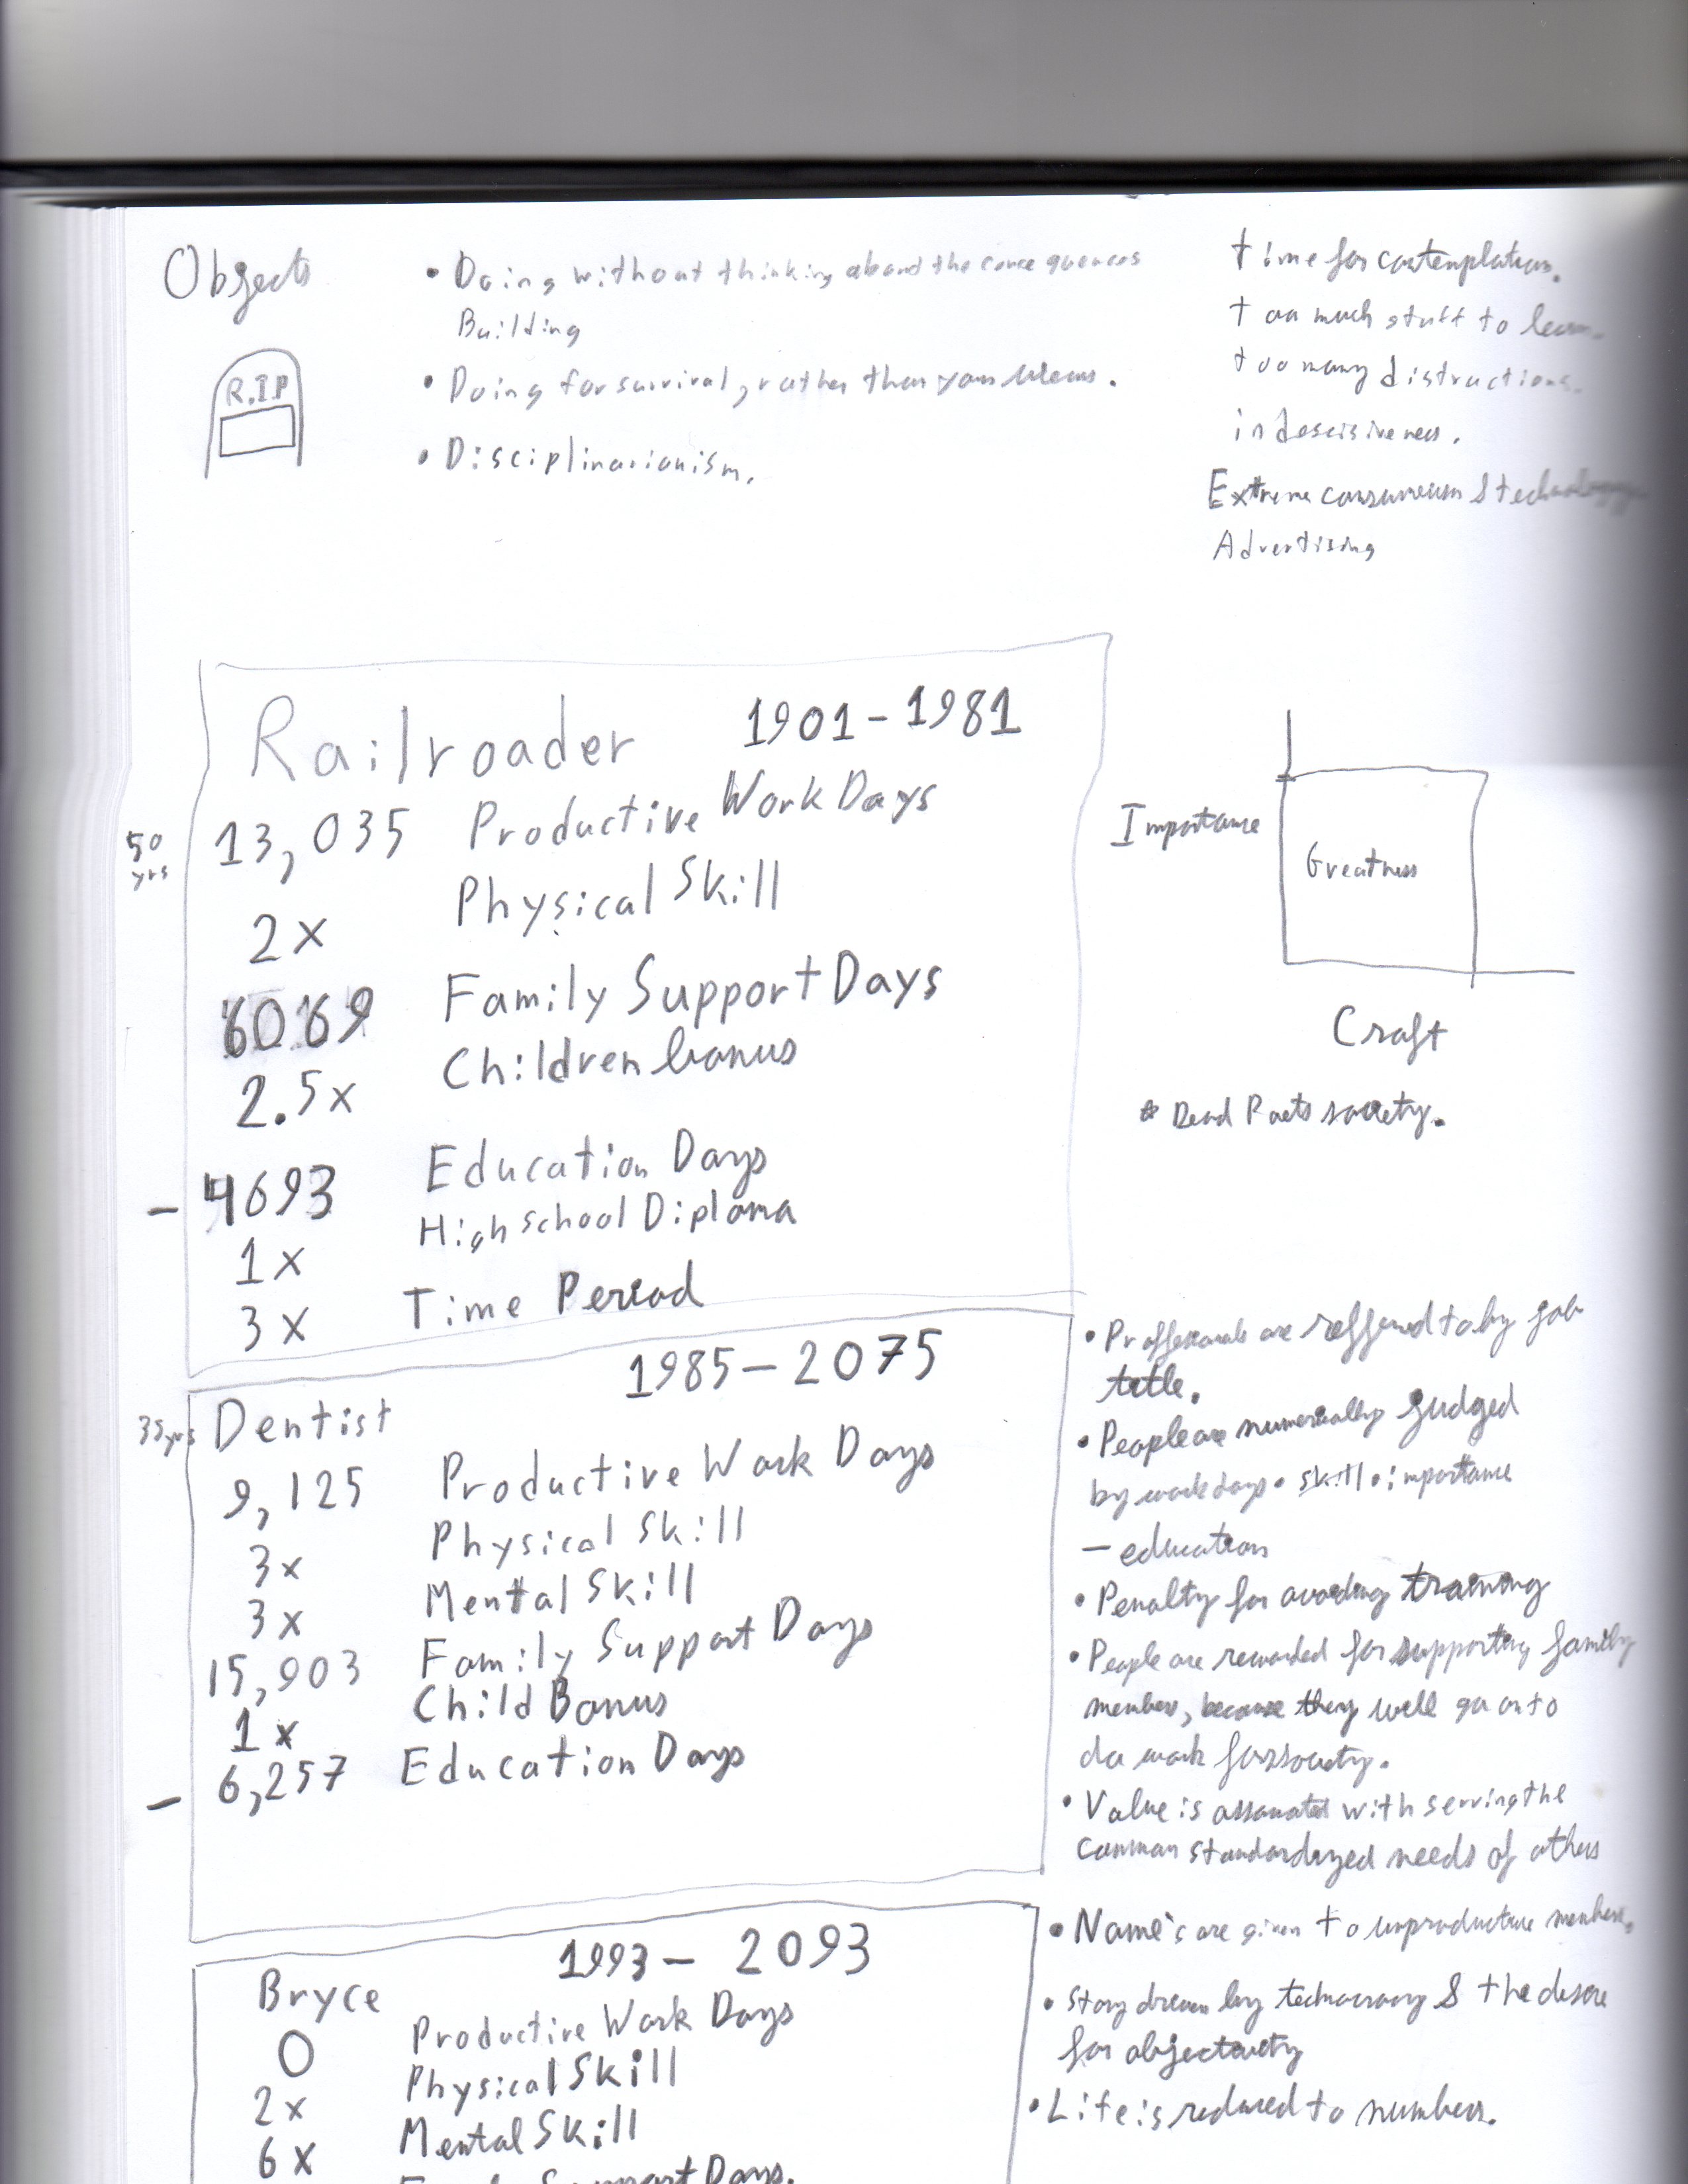 Objects
R.I.P
• Doing without thinking about the consequences
Building
• Doing for survival, rather than your
• Disciplinarianism.
time for contemplation.
too much stuff to learn.
too many distractions.
indescisiveness.
Extreme consumerism & technology
Advertising
Railroader 1901-1981
50 yrs
13,035 Productive Work Days
2x Physical Skill
6069 Family Support Days
2.5x Children bonus
- 4693 Education Days
1x High school Diploma
3x Time Period
Importance
Greatness
Craft
* Dead Poets society.
1985-2075
35yrs Dentist
9,125 Productive Work Days
3x Physical Skill
3x Mental Skill
15,903 Family Support Days
1x Child Bonus
- 6,257 Education Days
• Proffessionals are reffered to by job
title.
• People are numerically judged
by work days • skill • importance
- education
• Penalty for avoiding training
• People are rewarded for supporting family
members, because they will go on to
do work for society.
• Value is associated with serving the
common standardized needs of others
• Name's are given to unproductive members.
• Story driven by technocracy & the desire
for objectivity
• Life is reduced to numbers.
1993- 2093
Bryce
0 Productive Work Days
2x Physical Skill
6x Mental Skill
Family Support Days.